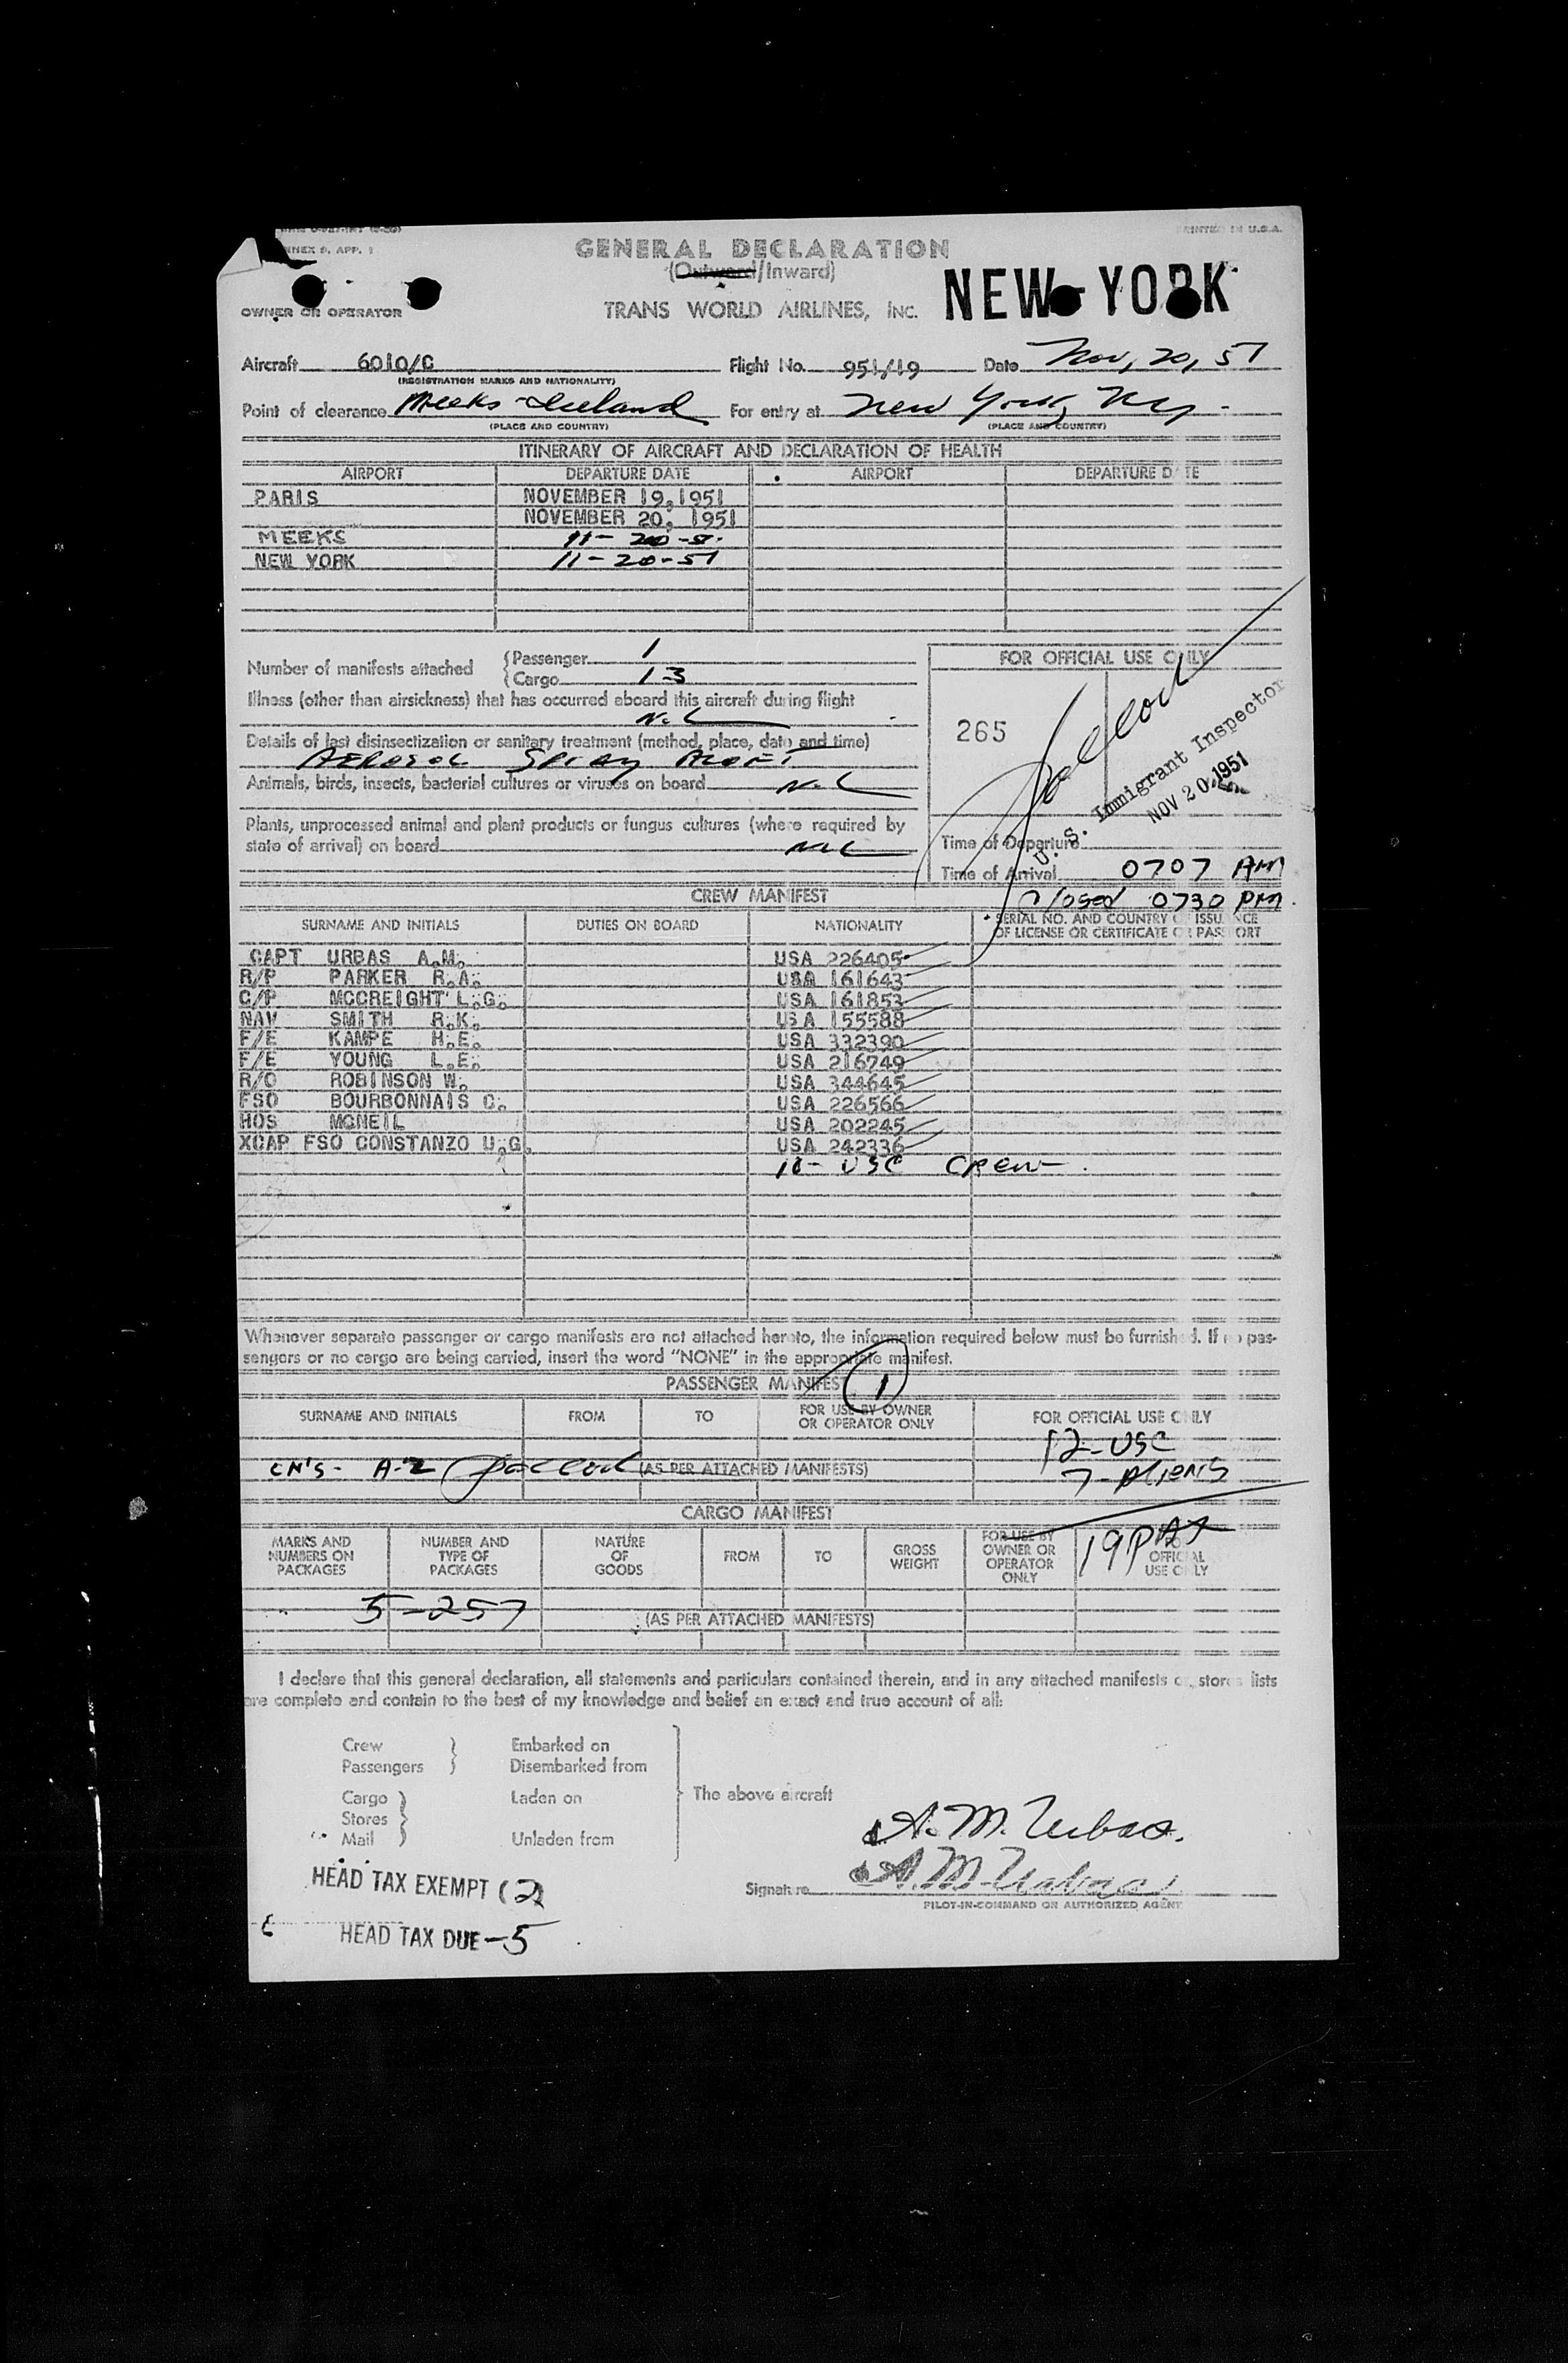 ANNEX 9, APP. 1
PRINTED IN U.S.A.
GENERAL DECLARATION
(Outward/Inward)
OWNER OR OPERATOR
TRANS WORLD AIRLINES, INC.
NEW YORK
Aircraft 6010/C Flight No. 951/19 Date Nov, 20, 51
(REGISTRATION MARKS AND NATIONALITY)
Point of clearance Meeks-Iceland For entry at New York, NY.
(PLACE AND COUNTRY) (PLACE AND COUNTRY)
ITINERARY OF AIRCRAFT AND DECLARATION OF HEALTH
AIRPORT DEPARTURE DATE AIRPORT DEPARTURE DATE
PARIS NOVEMBER 19,1951
NOVEMBER 20, 1951
MEEKS 11-20-51.
NEW YORK 11-20-51
Number of manifests attached
Passenger 1
Cargo 1-3
Illness (other than airsickness) that has occurred aboard this aircraft during flight
NIL
Details of last disinsectization or sanitary treatment (method, place, date and time)
AEROSOL SPRAY ALOFT
Animals, birds, insects, bacterial cultures or viruses on board NIL
Plants, unprocessed animal and plant products or fungus cultures (where required by
state of arrival) on board NIL
FOR OFFICIAL USE ONLY
265
U. S. Immigrant Inspector
NOV 20 1951
Time of Departure
Time of Arrival 0707 AM
Closed 0730 PM.
CREW MANIFEST
SURNAME AND INITIALS DUTIES ON BOARD NATIONALITY SERIAL NO. AND COUNTRY OF ISSUANCE
OF LICENSE OR CERTIFICATE OR PASSPORT
CAPT URBAS A.M. USA 226405
R/P PARKER R.A. USA 161643
C/P MCCREIGHT L.G. USA 161853
NAV SMITH R.K. USA 155588
F/E KAMPE H.E. USA 332390
F/E YOUNG L.E. USA 216749
R/O ROBINSON W. USA 344645
FSO BOURBONNAIS C. USA 226566
HOS MCNEIL USA 202245
XCAP FSO CONSTANZO U.G. USA 242336
10- USC CREW-.
Whenever separate passenger or cargo manifests are not attached hereto, the information required below must be furnished. If no pas-
sengers or no cargo are being carried, insert the word "NONE" in the appropriate manifest.
PASSENGER MANIFEST 1
SURNAME AND INITIALS FROM TO FOR USE BY OWNER
OR OPERATOR ONLY FOR OFFICIAL USE ONLY
12-USC
CN'S- A-2 (AS PER ATTACHED MANIFESTS) 7-Aliens
CARGO MANIFEST
19 PAX
MARKS AND
NUMBERS ON
PACKAGES
NUMBER AND
TYPE OF
PACKAGES
NATURE
OF
GOODS
FROM
TO
GROSS
WEIGHT
FOR USE BY
OWNER OR
OPERATOR
ONLY
OFFICIAL
USE ONLY
5-257 (AS PER ATTACHED MANIFESTS)
I declare that this general declaration, all statements and particulars contained therein, and in any attached manifests or stores lists
are complete and contain to the best of my knowledge and belief an exact and true account of all:
Crew Embarked on
Passengers Disembarked from
Cargo Laden on The above aircraft
Stores
Mail Unladen from
A. M. Urbas.
HEAD TAX EXEMPT (2)
Signature A. M. Urbas
PILOT-IN-COMMAND OR AUTHORIZED AGENT
HEAD TAX DUE-5